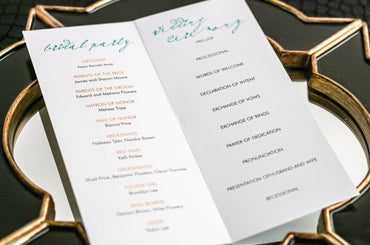 bridal party
OFFICIANT
PARENTS OF THE BRIDE
James and Sharon
PARENTS OF THE GROOM
Edward and Melanie Flowers
MATRON OF HONOR
Monica Tripp
MAID OF HONOR
Bianca Price
BRIDESMAIDS
Brown
BEST MAN
Kelli Parker
GROOMSMEN
Price, Benjamin Flowers, Oscar Gamble
FLOWER GIRL
Brooklyn Lee
RING BEARERS
Damon Brown, Miles Flowers
USHER
Walter Lee
wedding
ceremony
PRELUDE
PROCESSIONAL
WORDS OF WELCOME
DECLARATION OF INTENT
EXCHANGE OF VOWS
EXCHANGE OF RINGS
PRAYER OF DEDICATION
PRONUNCIATION
PRESENTATION OF HUSBAND AND WIFE
RECESSIONAL